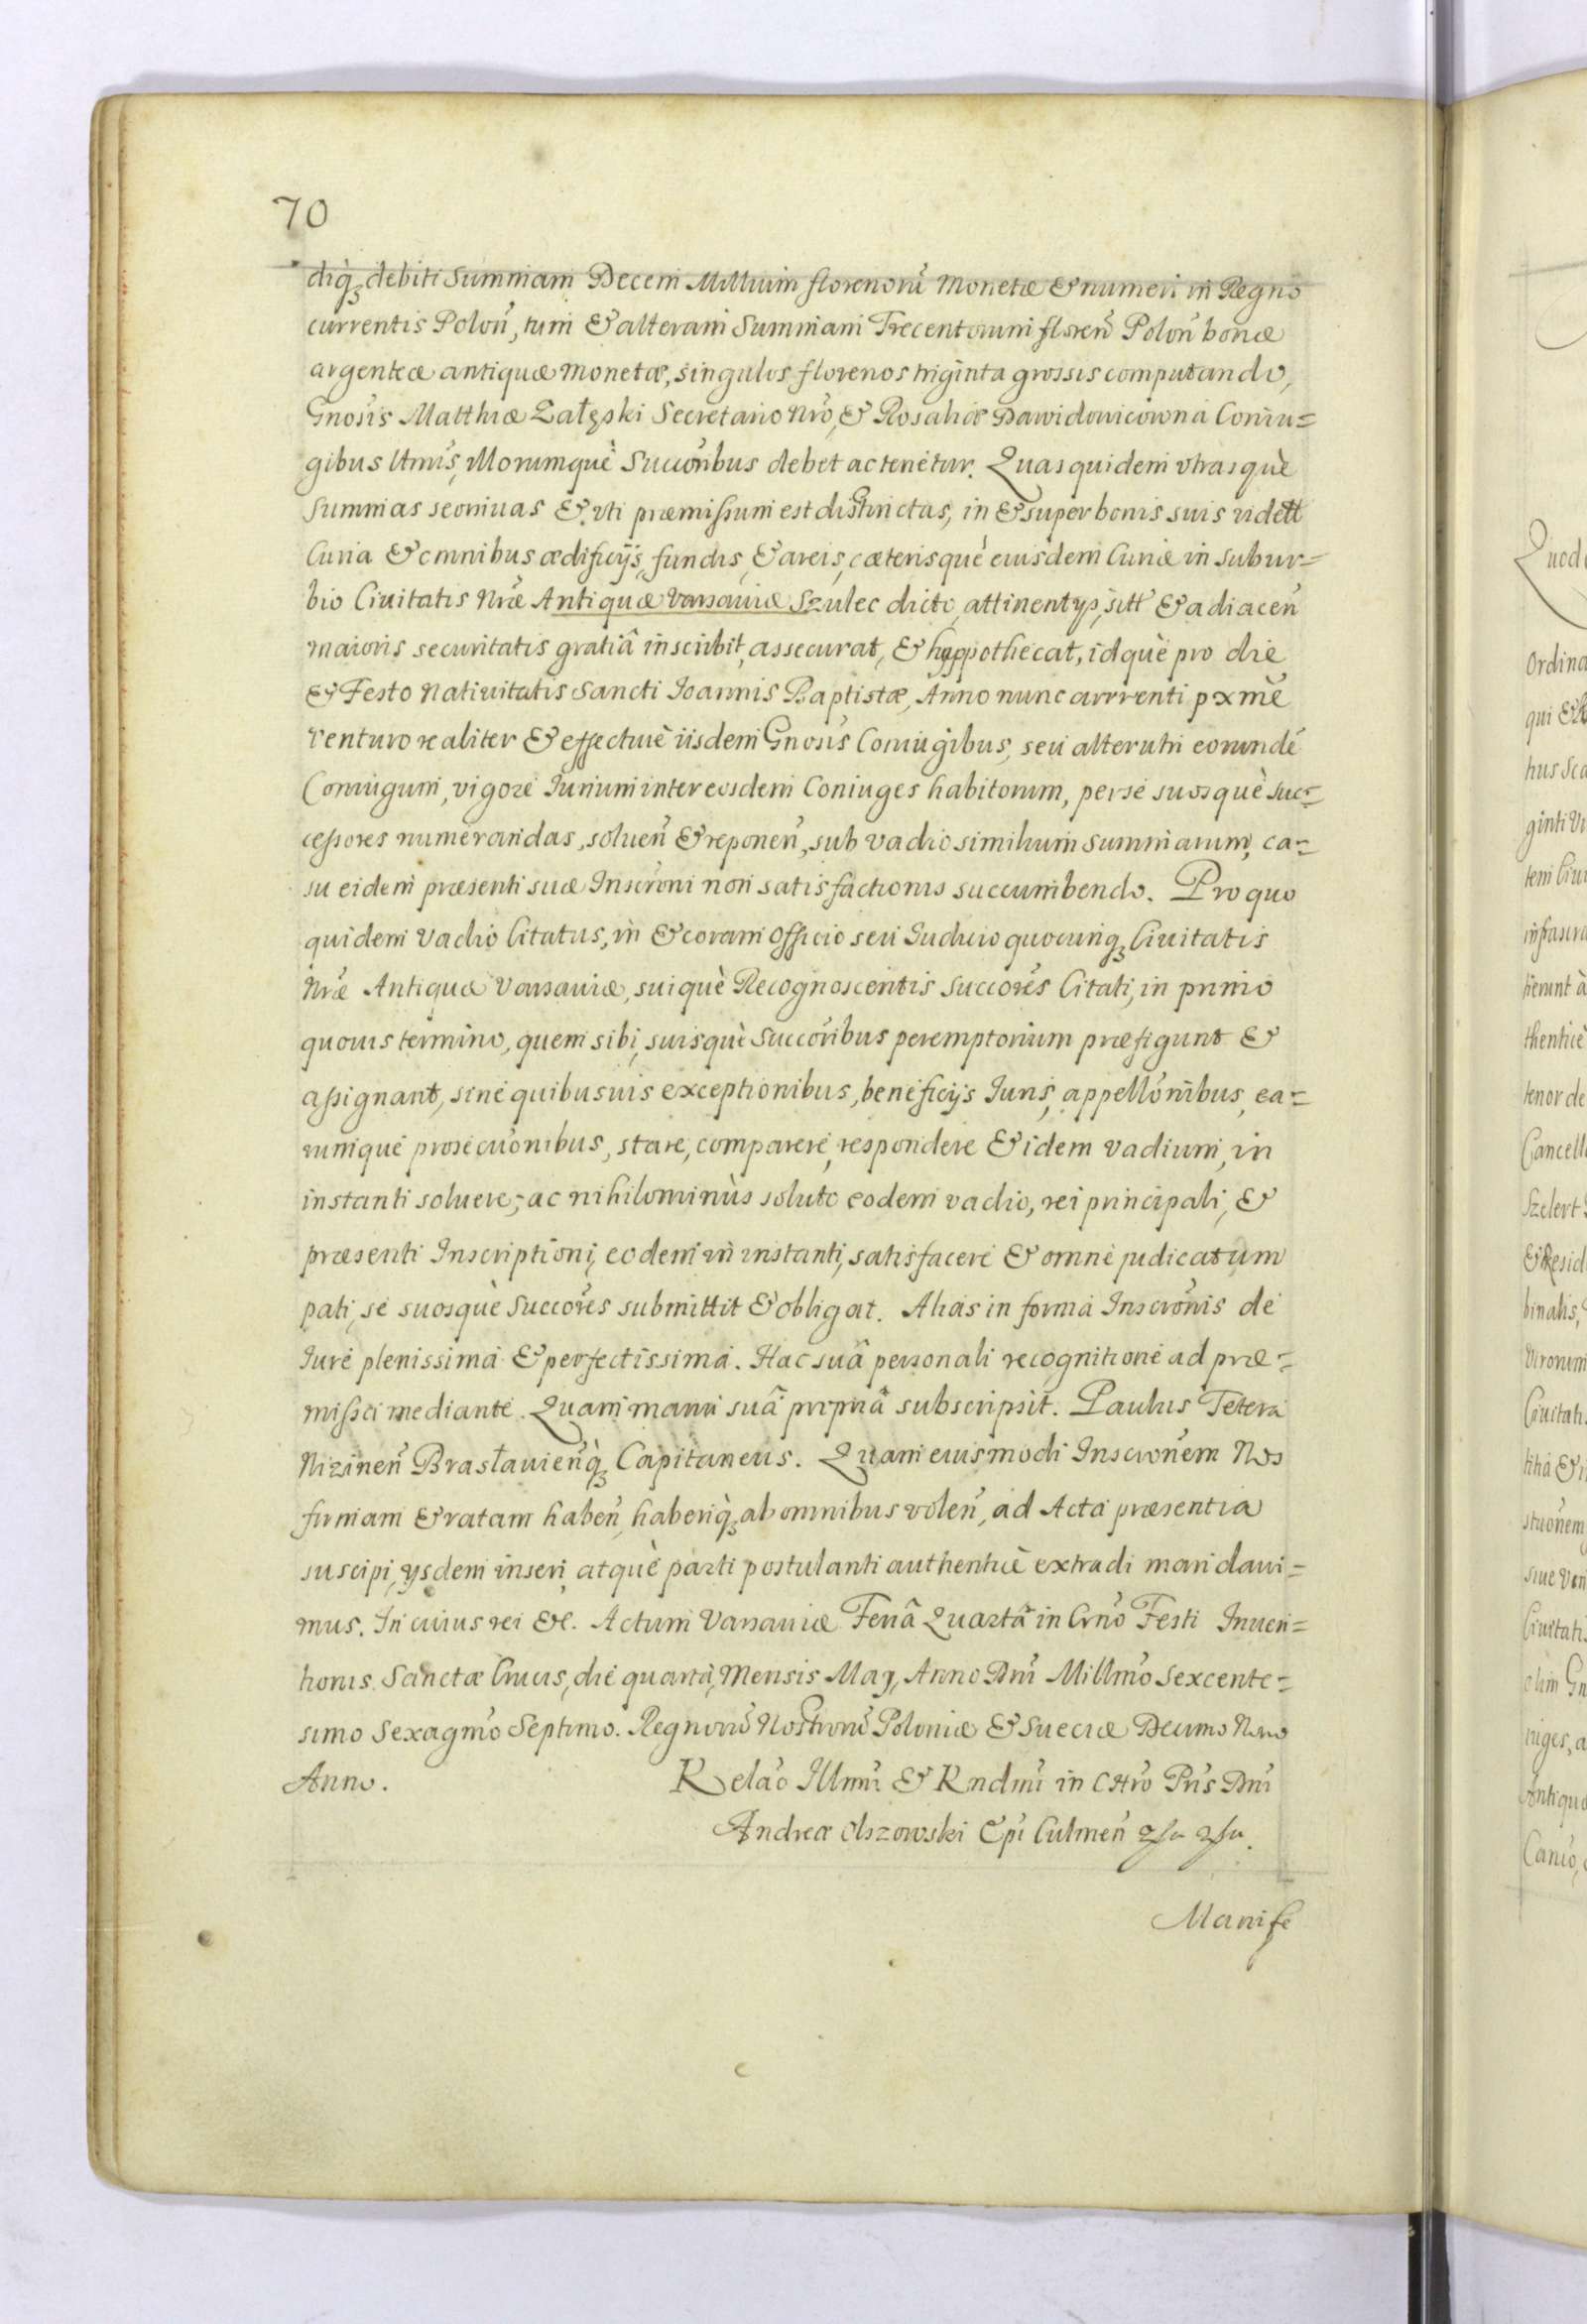 70
diq̀ꝫ debiti Summam Decem Millium florenorũ Monetæ & numeri in Regno
currentis Polon̄, tum & alteram Summam Trecentorum floren̄ Polon̄ bonæ
argenteæ antiquæ monetæ, singulos florenos triginta grossis computando,
Gnosis Matthiæ Załęski Secretario Nro, & Rosaliæ Dawidowicowna Coniu=
gibus Itmis, Illorumquè Succoribus debet ac tenetur. Quas quidem vtrasquè
Summas seoriuas & vti præmissum est distinctas, in & super bonis suis vidett
Curia & omnibus ædificijs, fundis, & areis, cæterisquè eiusdem Curiæ in subur=
bio Ciuitatis Nræ Antiquæ Varsauiæ Szulec dicto, attinentijs, sitt & adiacen̄
maioris securitatis gratiâ inscribit, assecurat, & hyppothecat, idquè pro die
& Festo Natiuitatis Sancti Ioannis Baptistæ, Anno nunc currenti pxme
venturo realiter & effectiuè iisdem Gnosis Coniugibus, seu alterutri eorundē
Coniugum, vigore Iurium inter eosdem Coniuges habitorum, per se suosquè suc=
cessores numerandas, soluen̄ & reponen̄, sub vadio similium summarum, ca=
su eidem præsenti suæ Inscrōni non satisfactionis succumbendo. Pro quo
quidem Vadio Citatus, in & coram Officio seu Iudicio quocunq̀ꝫ Ciuitatis
Nræ Antiquæ Varsauiæ, suiquè Recognoscentis Succores Citati, in primo
quouis termino, quem sibi, suisquè Succoribus peremptorium præfigunt &
assignant, sine quibusuis exceptionibus, beneficijs Iuris, appellōnibus, ea=
rumque prosecuōnibus, stare, comparere, respondere & idem vadium, in
instanti soluere; ac nihilominùs soluto eodem vadio, rei principali, &
præsenti Inscriptioni, eodem in instanti, satisfacere & omne judicatum
pati, se suosquè Succores submittit & obligat. Alias in forma Inscrōnis de
Iure plenissima & perfectissima. Hac suâ personali recognitione ad præ=
missa mediante. Quam manu suâ propriâ subscripsit. Paulus Tetera
Nizinen̄ Brasłauien̄q̀ꝫ Capitaneus. Quam eiusmodi Inscrōnem Nos
firmam & ratam haben̄, haberiq̀ꝫ ab omnibus volen̄, ad Acta præsentia
suscipi, ijsdem inseri, atquè parti postulanti authenticè extradi mandaui=
mus. In cuius rei &c. Actum Varsauiæ Feriâ Quartâ in Crno Festi Inuen=
tionis Sanctæ Crucis, die quarta, Mensis Maij, Anno Dni Millmo Sexcente=
simo Sexagmo Septimo. Regnorũ Nostrorũ Poloniæ & Sueciæ Decimo Nono
Anno. Relāo Illmi & Rndmi in Chro Pris Dni
Andreæ Olszowski Epi Culmen̄
Manife